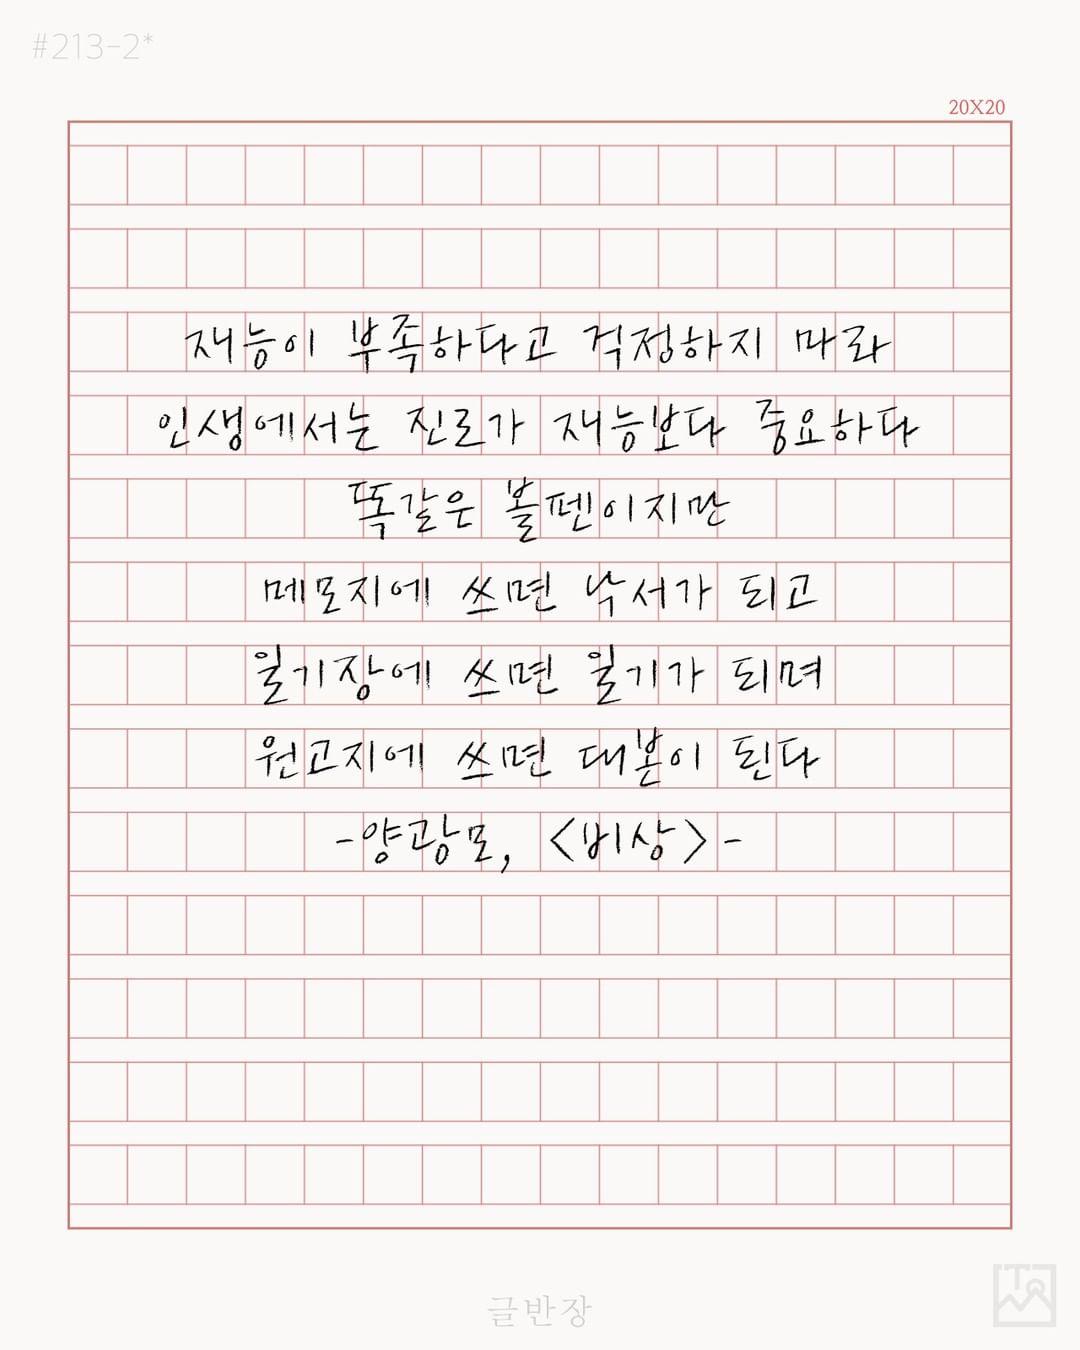 #213-2*
20X20
재능이 부족하다고 걱정하지 마라
인생에서는 진로가 재능보다 중요하다
똑같은 볼펜이지만
메모지에 쓰면 낙서가 되고
일기장에 쓰면 일기가 되며
원고지에 쓰면 대본이 된다
-양광모, <비상>-
글반장